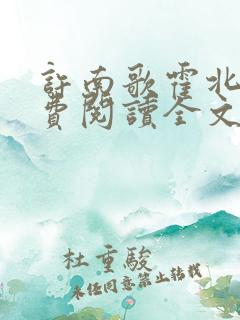 許南歌霍北
費閱讀全文
杜重駿
未任同意禁止轉載